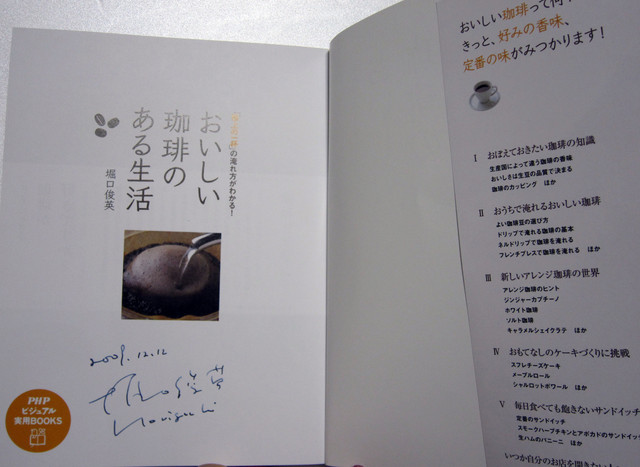 の淹れ方がわかる!
おいしい
珈琲の
ある生活
堀口俊英
2009.12.12
Horiguchi
PHP
ビジュアル
実用BOOKS
おいしい珈琲って何
きっと、好みの香味、
定番の味がみつかります!
I おぼえておきたい珈琲の知識
生産国によって違う珈琲の香味
おいしさは生豆の品質で決まる
珈琲のカッピング ほか
II おうちで淹れるおいしい珈琲
よい珈琲豆の選び方
ドリップで淹れる珈琲の基本
ネルドリップで珈琲を淹れる
フレンチプレスで珈琲を淹れる ほか
III 新しいアレンジ珈琲の世界
アレンジ珈琲のヒント
ジンジャーカプチーノ
ホワイト珈琲
ソルト珈琲
キャラメルシェイクラテ ほか
IV おもてなしのケーキづくりに挑戦
スフレチーズケーキ
メープルロール
シャルロットポワール ほか
V 毎日食べても飽きないサンドイッチ
定番のサンドイッチ
スモークハーブチキンとアボカドのサンドイッ
生ハムのパニーニ ほか
いつか自分のお店を開きたい